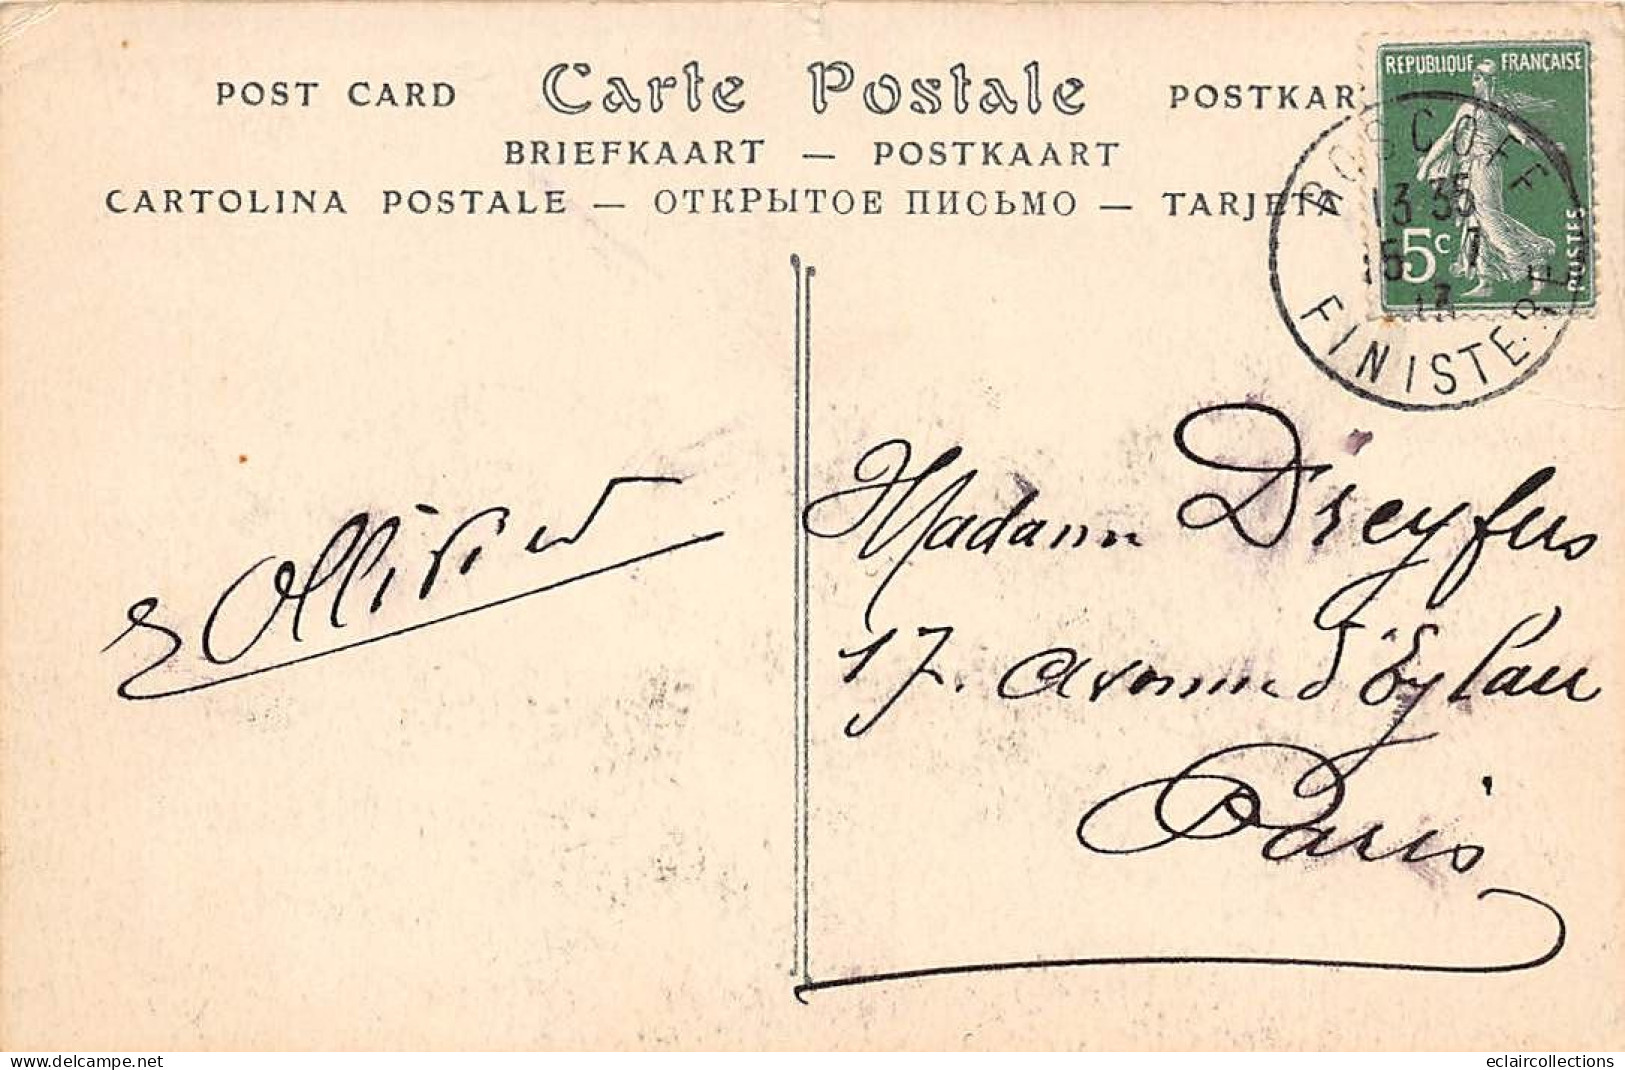 POST CARD Carte Postale POSTKAR
BRIEFKAART — POSTKAART
CARTOLINA POSTALE — ОТКРЫТОЕ ПИСЬМО — TARJETA
REPUBLIQUE FRANÇAISE
5c
POSTES
ROSCOFF
13 35
15 7
13
FINISTERE
E Ollivier
Madame Dreyfus
17. avenue d'Eylau
Paris
delcampe.net
eclaircollections